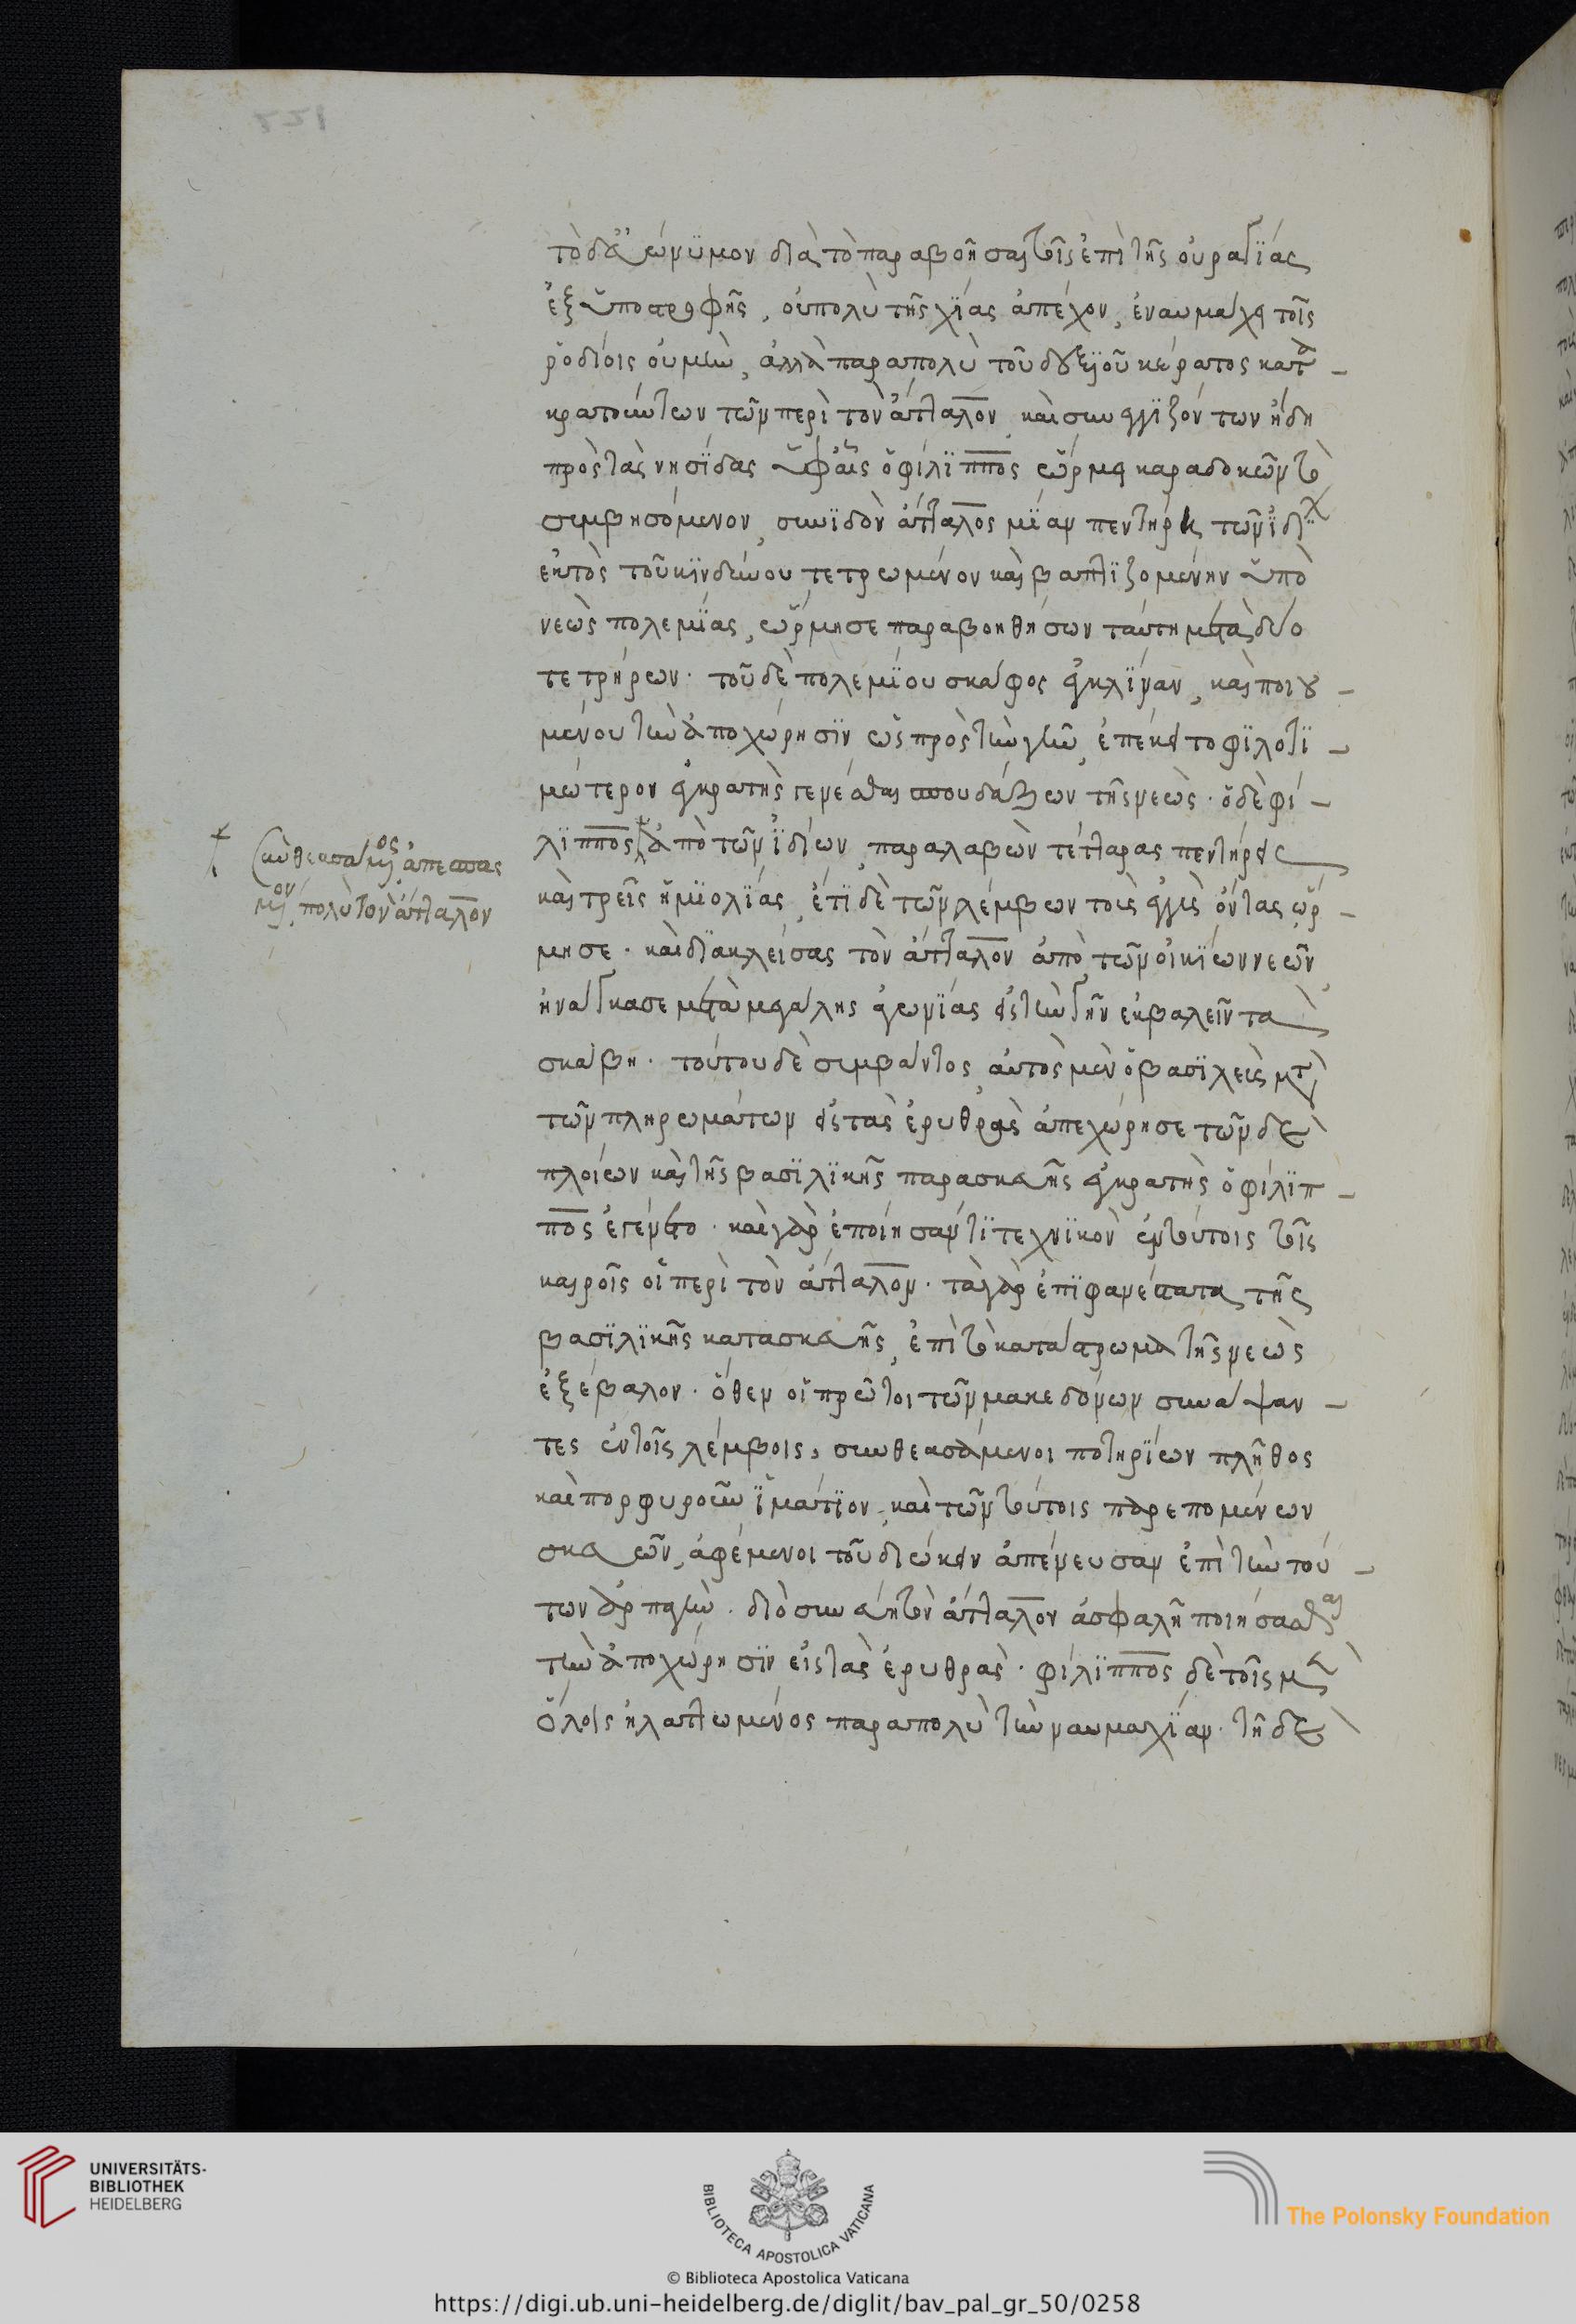 τὸ δ' εὐώνυμον διὰ τὸ παραβοῆσαι τοῖς ἐπὶ τῆς οὐραγΐας
ἐξ ὑποστροφῆς, οὐ πολὺ τῆς χΐας ἀπέχον, ἐναυμάχει τοῖς
ῥοδίοις οὐ μὴν, ἀλλὰ παραπολὺ τοῦ δεξϊοῦ κέρατος κατα
κρατούντων τῶν περὶ τὸν ἄτταλον, καὶ συνεγγϊζόντων ἤδη
πρὸς τὰς νησῖδας ὑφ' αἷς ὁ φίλϊππος ὥρμει καραδοκῶν τὸ
συμβησόμενον, συνϊδὸν ἄτταλος μΐαν πεντήρη τῶν ἰδίων
ἐκτὸς τοῦ κϊνδύνου τετρωμένον καὶ βαπτϊζομένην ὑπὸ
νεὼς πολεμΐας, ὥρμησε παραβοηθήσων ταύτη μετὰ δύο
τετρήρων. τοῦ δὲ πολεμΐου σκάφος ἐγκλΐναν, καὶ ποιου
μένου τὴν ἀποχώρησϊν ὡς πρὸς τὴν γῆν, ἐπέκειτο φϊλοτϊ
μώτερον ἐγκρατὴς γενέσθαι σπουδάζων τῆς νεώς. ὁ δὲ φί
λϊππος ἀπὸ τῶν ἰδίων παραλαβὼν τέτταρας πεντήρεις
καὶ τρεῖς ἡμϊολΐας, ἔτϊ δὲ τῶν λέμβων τοὺς ἐγγὺς ὄντας ὥρ
μησε. καὶ δϊακλείσας τὸν ἄτταλον ἀπὸ τῶν οἰκΐων νεῶν
ἠνάγκασε μετὰ μεγάλης ἀγωνΐας εἰς τὴν γῆν ἐκβαλεῖν τὰ
σκάφη. τούτου δὲ συμβάντος αὐτὸς μὲν ὁ βασϊλεὺς μετὰ
τῶν πληρωμάτων εἰς τὰς ἐρυθρὰς ἀπεχώρησε τῶν δὲ
πλοίων καὶ τῆς βασϊλϊκῆς παρασκευῆς ἐγκρατὴς ὁ φίλϊπ
πος ἐγένετο. καὶ γὰρ ἐποίησάν τϊ τεχνϊκὸν ἐν τούτοις τοῖς
καιροῖς οἱ περὶ τὸν ἄτταλον. τὰ γὰρ ἐπϊφανέστατα τῆς
βασϊλϊκῆς κατασκευῆς, ἐπὶ τὸ κατάστρωμα τῆς νεὼς
ἐξέβαλον. ὅθεν οἱ πρῶτοι τῶν μακεδόνων συνάψαν
τες ἐν τοῖς λέμβοις, συνθεασάμενοι ποτηρΐων πλῆθος
καὶ πορφυροῦν ἱμάτϊον, καὶ τῶν τούτοις παρεπομένων
σκευῶν, ἀφέμενοι τοῦ διώκειν ἀπένευσαν ἐπὶ τὴν τού
των ἁρπαγήν. διὸ συνέβη τὸν ἄτταλον ἀσφαλῆ ποιήσασθαι
τὴν ἀποχώρησϊν εἰς τὰς ἐρυθράς. φίλϊππος δὲ τοῖς μὲν
ὅλοις ἠλαττωμένος παραπολὺ τὴν ναυμαχΐαν. τῆ δὲ
συνθεασάμενος ἀπεσπασ
μένον πολὺ τὸν ἄτταλον
UNIVERSITÄTS-
BIBLIOTHEK
HEIDELBERG
BIBLIOTECA APOSTOLICA VATICANA
© Biblioteca Apostolica Vaticana
The Polonsky Foundation
https://digi.ub.uni-heidelberg.de/diglit/bav_pal_gr_50/0258